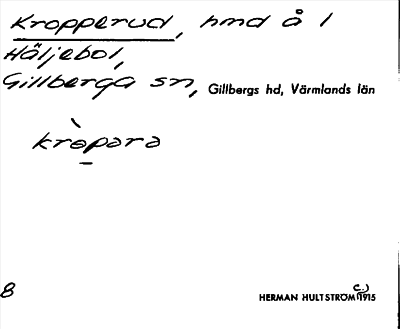 Kropperud, hmd å 1
Häljebol,
Gillberga sn, Gillbergs hd, Värmlands län
kròpara
8
HERMAN HULTSTRÖM (c.) 1915